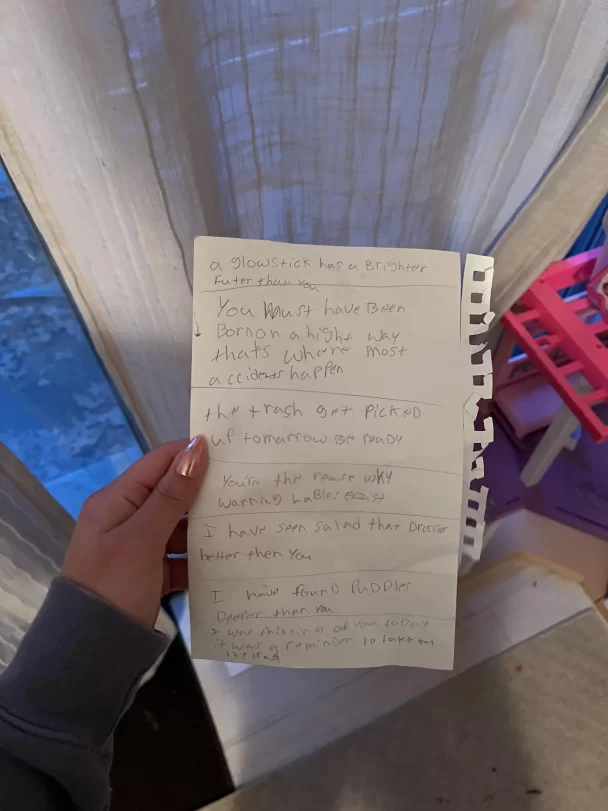 a glowstick has a Brighter
Futer than you
You Must have Been
Born on a hight way
thats where most
accidents happen
the trash get picked
up tomorrow Be ready
You're the rease wky
warning Lables exzist
I have seen salad that Dresser
better then you
I have found PuDDles
Deeper than you
I was thining of you toDay
it was a reminder to take out
the trash